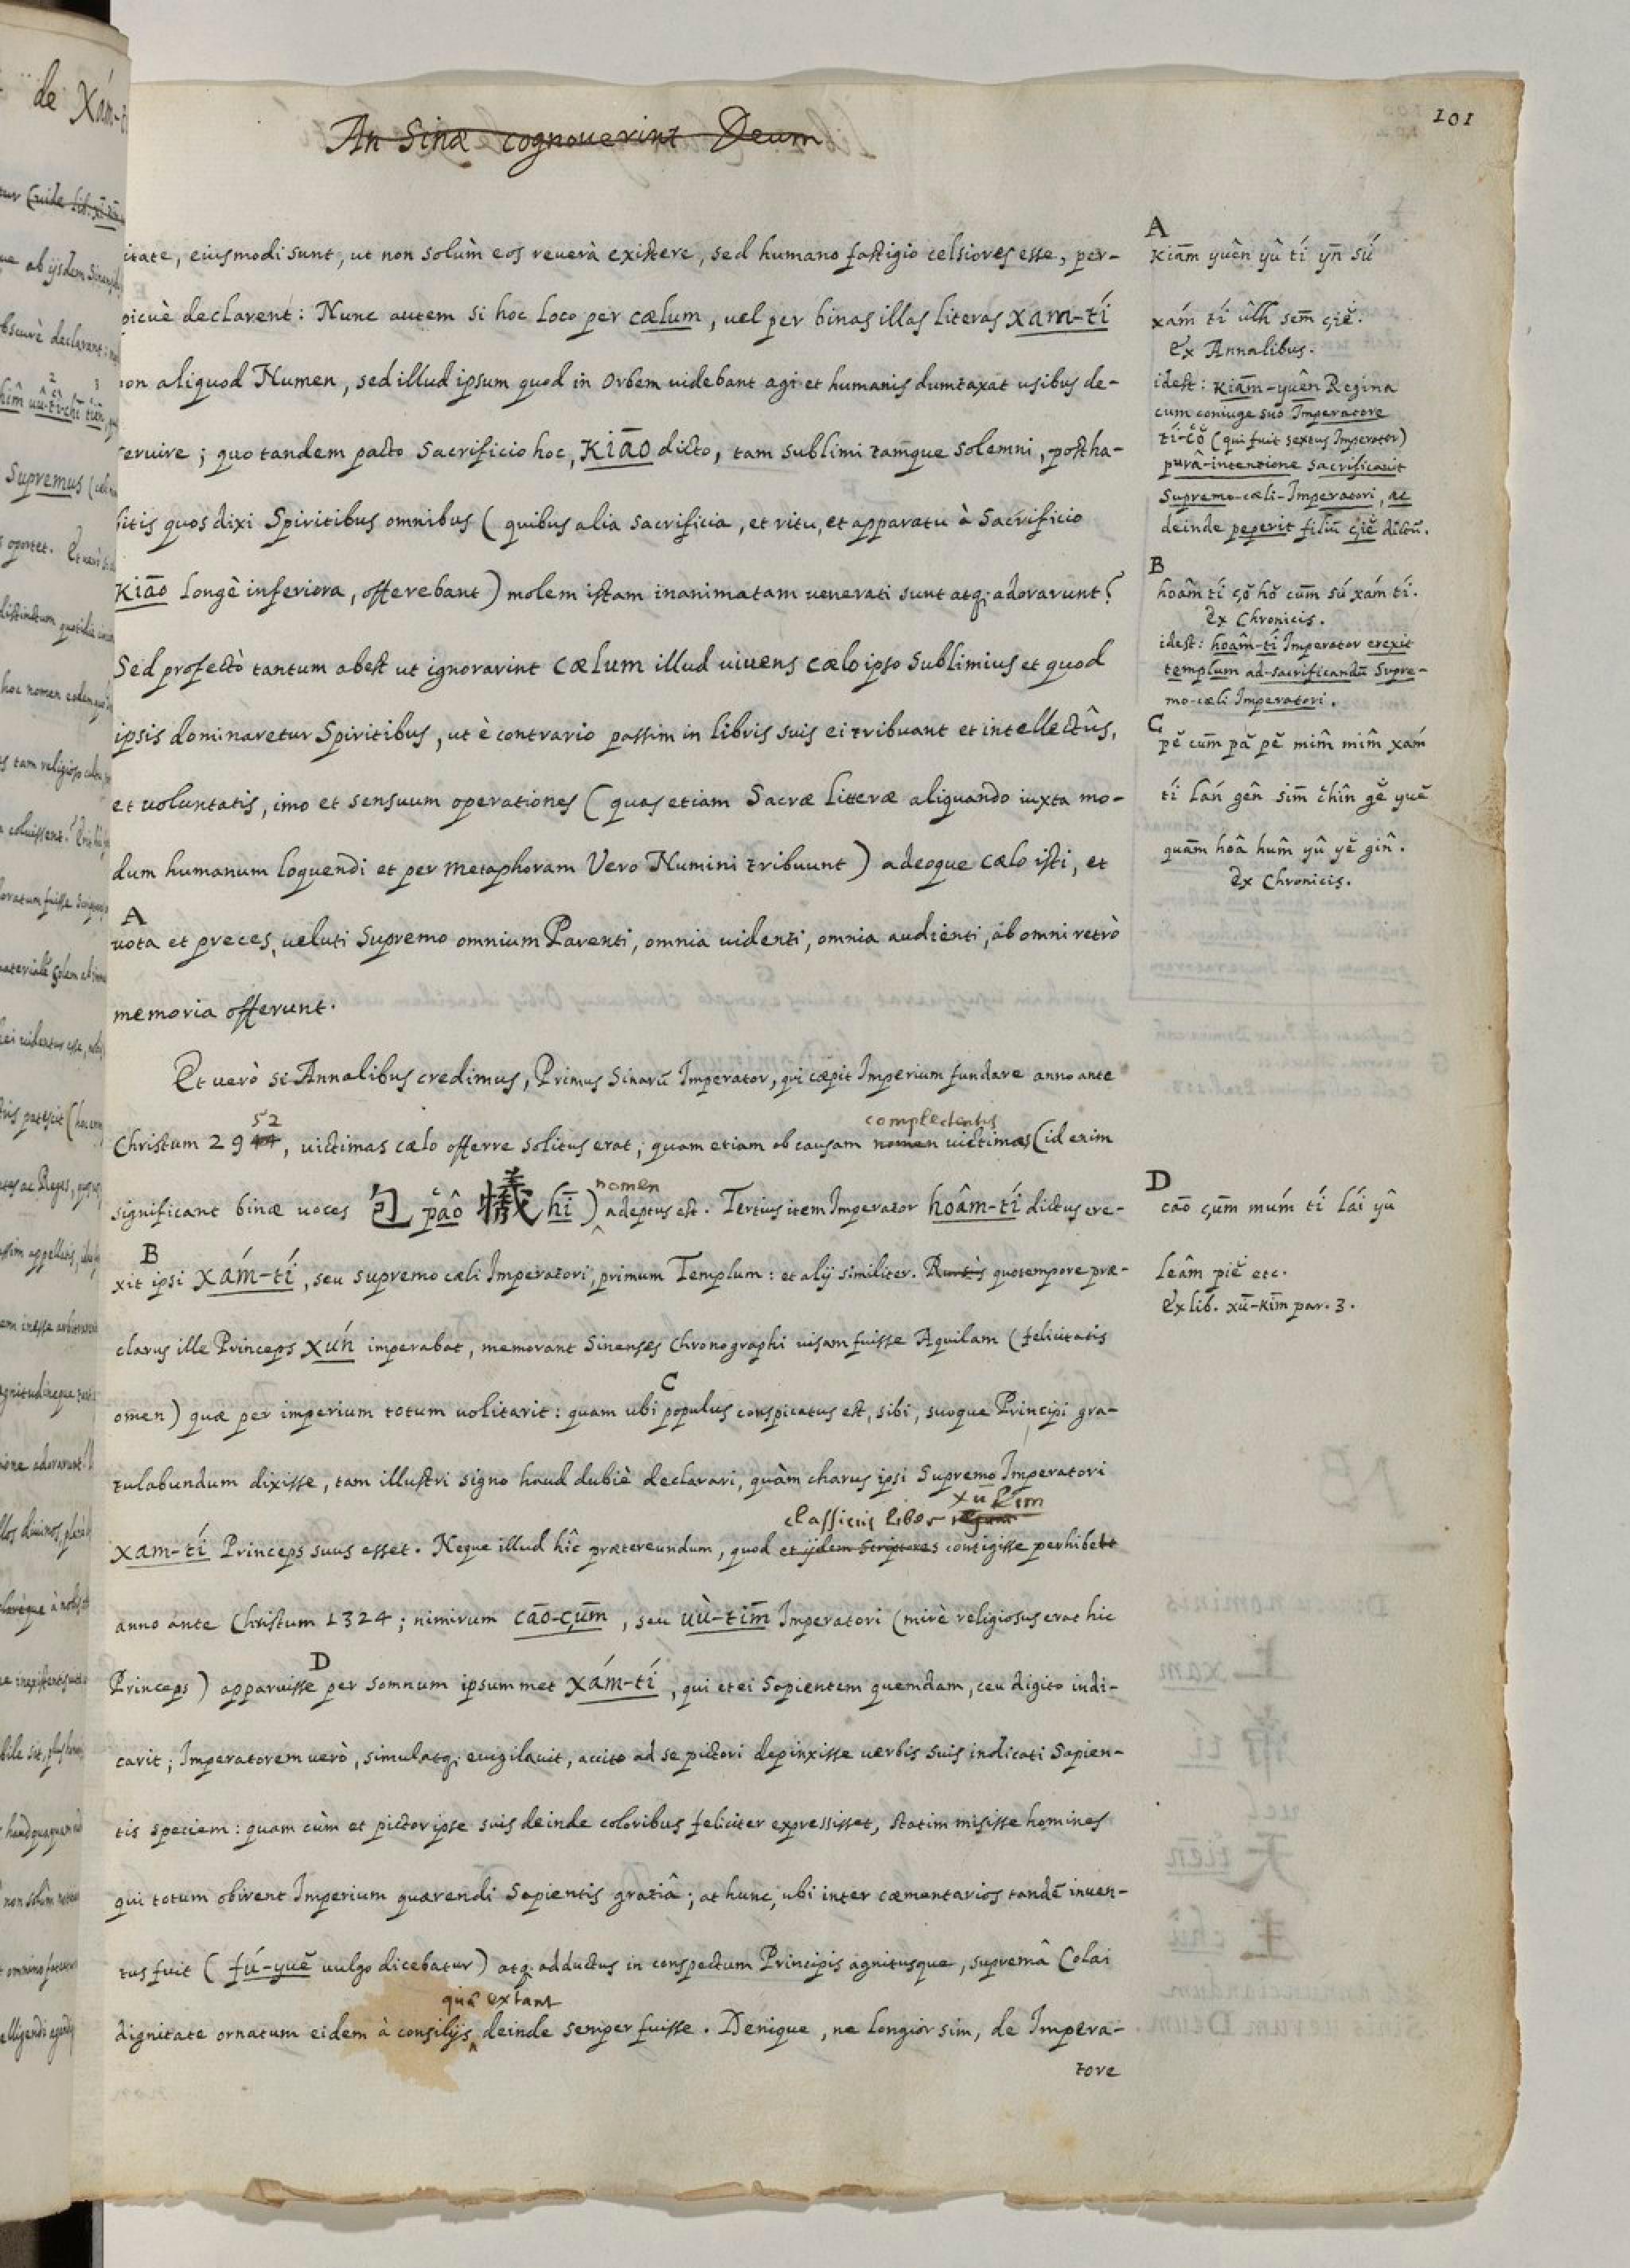 101
An Sinæ cognouerint Deum
itate, eiusmodi sunt, ut non solùm eos reuerà existere, sed humano fastigio celsiores esse, per-
picuè declarent: Nunc autem si hoc loco per cælum, uel per binas illas literas xam-tí
non aliquod Numen, sed illud ipsum quod in orbem uidebant agi et humanis dumtaxat usibus de-
seruire; quo tandem pacto sacrificio hoc, KIĀO dicto, tam sublimi tamque solemni, postha-
bitis quos dixi Spiritibus omnibus (quibus alia sacrificia, et ritu, et apparatu à sacrificio
KIāo longè inferiora, offerebant) molem istam inanimatam uenerati sunt atq; adorarunt?
Sed profectò tantum abest ut ignorarint cælum illud uiuens cælo ipso sublimius et quod
ipsis dominaretur Spiritibus, ut è contrario passim in libris suis ei tribuant et intellectûs,
et uoluntatis, imo et sensuum operationes (quas etiam Sacræ litteræ aliquando iuxta mo-
dum humanum loquendi et per metaphoram Vero Numini tribuunt) adeoque cælo isti, et
A
uota et preces, ueluti supremo omnium Parenti, omnia uidenti, omnia audienti, ab omni retrò
memoria offerunt.
Et uerò si Annalibus credimus, Primus Sinarū Imperator, qui cæpit Imperium fundare anno ante
52 complectentis
Christum 2944, uictimas cælo offerre solitus erat; quam etiam ob causam nomen uictimas (id enim
nomen
significant binæ uoces 包 pâo 犧 hī) adeptus est. Tertius item Imperator hoâm-tí dictus ere-
B
xit ipsi xám-tí, seu supremo cæli Imperatori, primum Templum: et alij similiter. Rursùs quo tempore præ-
clarus ille Princeps xún imperabat, memorant Sinenses chronographi uisam fuisse Aquilam (felicitatis
C
omen) quæ per imperium totum uolitarit: quam ubi populus conspicatus est, sibi, suoque Principi gra-
tulabundum dixisse, tam illustri signo haud dubiè declarari, quàm charus ipsi supremo Imperatori
classicus liber xū kim
xam-tí Princeps suus esset. Neque illud hîc prætereundum, quod et ijdem scriptores contigisse perhibent
anno ante Christum 1324; nimirum cāo-çūm, seu uù-tīm Imperatori (mirè religiosus erat hic
D
Princeps) apparuisse per somnum ipsummet xám-tí, qui et ei sapientem quemdam, ceu digito indi-
carit; Imperatorem uerò, simulatq; euigilauit, accito ad se pictori depinxisse uerbis suis indicati sapien-
tis speciem: quam cùm et pictor ipse suis deinde coloribus feliciter expressisset, statim misisse homines
qui totum obirent Imperium quærendi sapientis gratiâ; at hunc, ubi inter cæmentarios tandē inuen-
tus fuit (fú-yuĕ uulgo dicebatur) atq; adductus in conspectum Principis agnitusque, supremâ Colai
quæ extant
dignitate ornatum eidem à consilijs deinde semper fuisse. Denique, ne longior sim, de Impera-
tore
A
Kiām yuên yû tí ȳn sú
xám tí ûlh sēm çiĕ.
Ex Annalibus.
idest: Kiām-yuên Regina
cum coniuge suo Imperatore
tí-cŏ (qui fuit sextus Imperator)
purâ-intentione sacrificauit
Supremo-cæli-Imperatori, ac
deinde peperit filiū çiĕ dictū.
B
hoâm tí çŏ hŏ cūm sú xám tí.
Ex Chronicis.
idest: hoâm-tí Imperator erexit
templum ad-sacrificandū Supre-
mo-cæli Imperatori.
C
pĕ cūm pă pĕ mîm mîm xám
tí lán gên sīm chîn gĕ yuĕ
quām hôa hûm yû yĕ gîn.
Ex Chronicis.
D
cāo çūm múm tí lái yû
leâm piĕ etc.
Ex lib. xū-kīm par. 3.